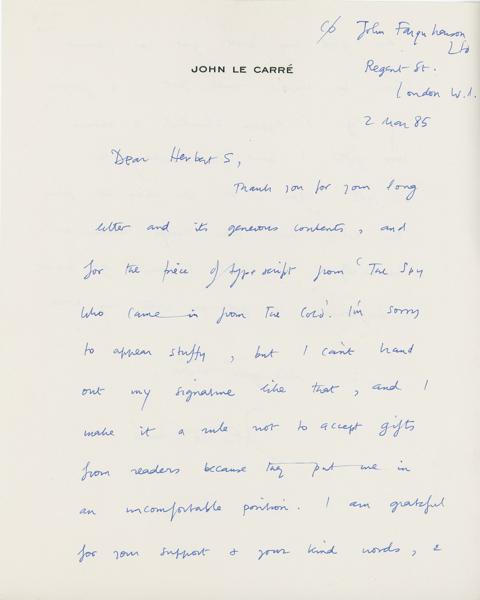 c/o John Farquharson
Ltd
JOHN LE CARRÉ
Regent St.
London W.1.
2 Mar 85
Dear Herbert S,
Thank you for your long
letter and its generous contents, and
for the piece of typescript from 'The Spy
Who came in from The Cold'. I'm sorry
to appear stuffy, but I can't hand
out my signature like that, and I
make it a rule not to accept gifts
from readers because they put me in
an uncomfortable position. I am grateful
for your support & your kind words, &